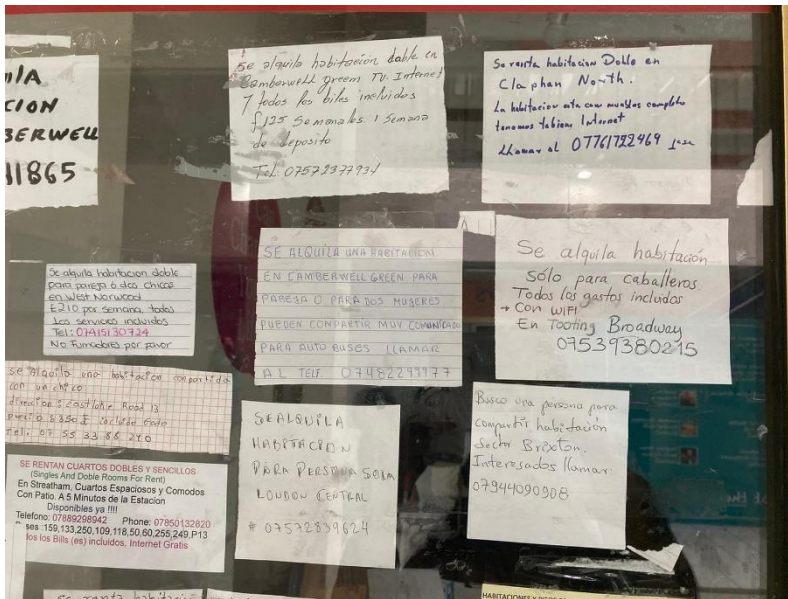 ION
BERWELL
11865
Se alquila habitacion doble en
Camberwell green TV. Internet
Y todos los biles incluidos
£125 Semanales. 1 Semana
de deposito
Tel. 07572377934
Se renta habitacion Doble en
Claphan North.
La habitacion esta con muebles completo
tenemos tabien Internet
LLamar al 07761722469
Se alquila habitacion doble
para pareja ó dos chicas
en West Norwood
£210 por semana, todos
los servicios incluidos
Tel: 07415130724
No Fumadores por favor
SE ALQUILA UNA HABITACION
EN CAMBERWELL GREEN PARA
PAREJA O PARA DOS MUJERES
PUEDEN COMPARTIR MUY COMUNIDADO
PARA AUTO BUSES LLAMAR
AL TELF. 07482293977
Se alquila habitación
Sólo para caballeros
Todos los gastos incluidos
→ Con WIFI
En Tooting Broadway
07539380215
se Alquila una habitación compartida
con un chico
Road 13
precio £350 incluido todo
Teli. 07 55 33 86 240
SE ALQUILA
HABITACION
PARA PERSONA SOLA
LONDON CENTRAL
# 07572839624
Busco una persona para
compartir habitación
sector Brixton.
Interesados llamar:
07944090908
SE RENTAN CUARTOS DOBLES Y SENCILLOS
(Singles And Doble Rooms For Rent)
En Streatham, Cuartos Espaciosos y Comodos
Con Patio. A 5 Minutos de la Estacion
Disponibles ya !!!!
Telefono: 07889298942 Phone: 07850132820
ses :159,133,250,109,118,50,60,255,249,P13
los Bills (es) incluidos, Internet Gratis
se renta habitación